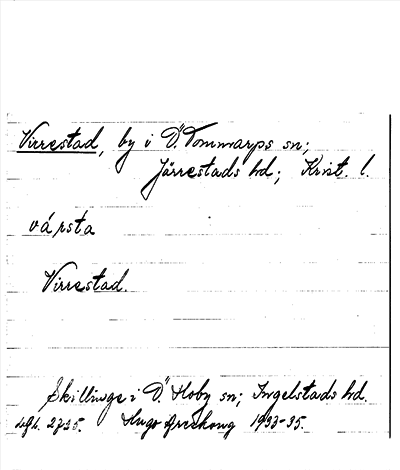 Virrestad, by i Ö. Tommarps sn;
Järrestads hd; Krist. l.
vársta
Virrestad.
Skillinge i Ö. Hoby sn; Ingelstads hd.
2725. Hugo Areskoug 1933-35.